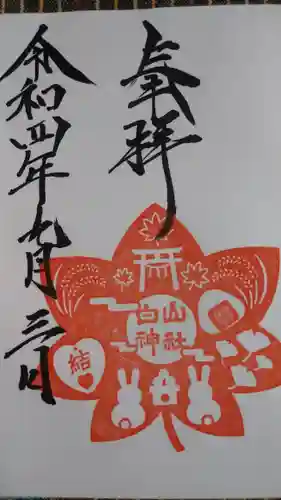 奉拝
白山
神社
結
令和四年九月三日